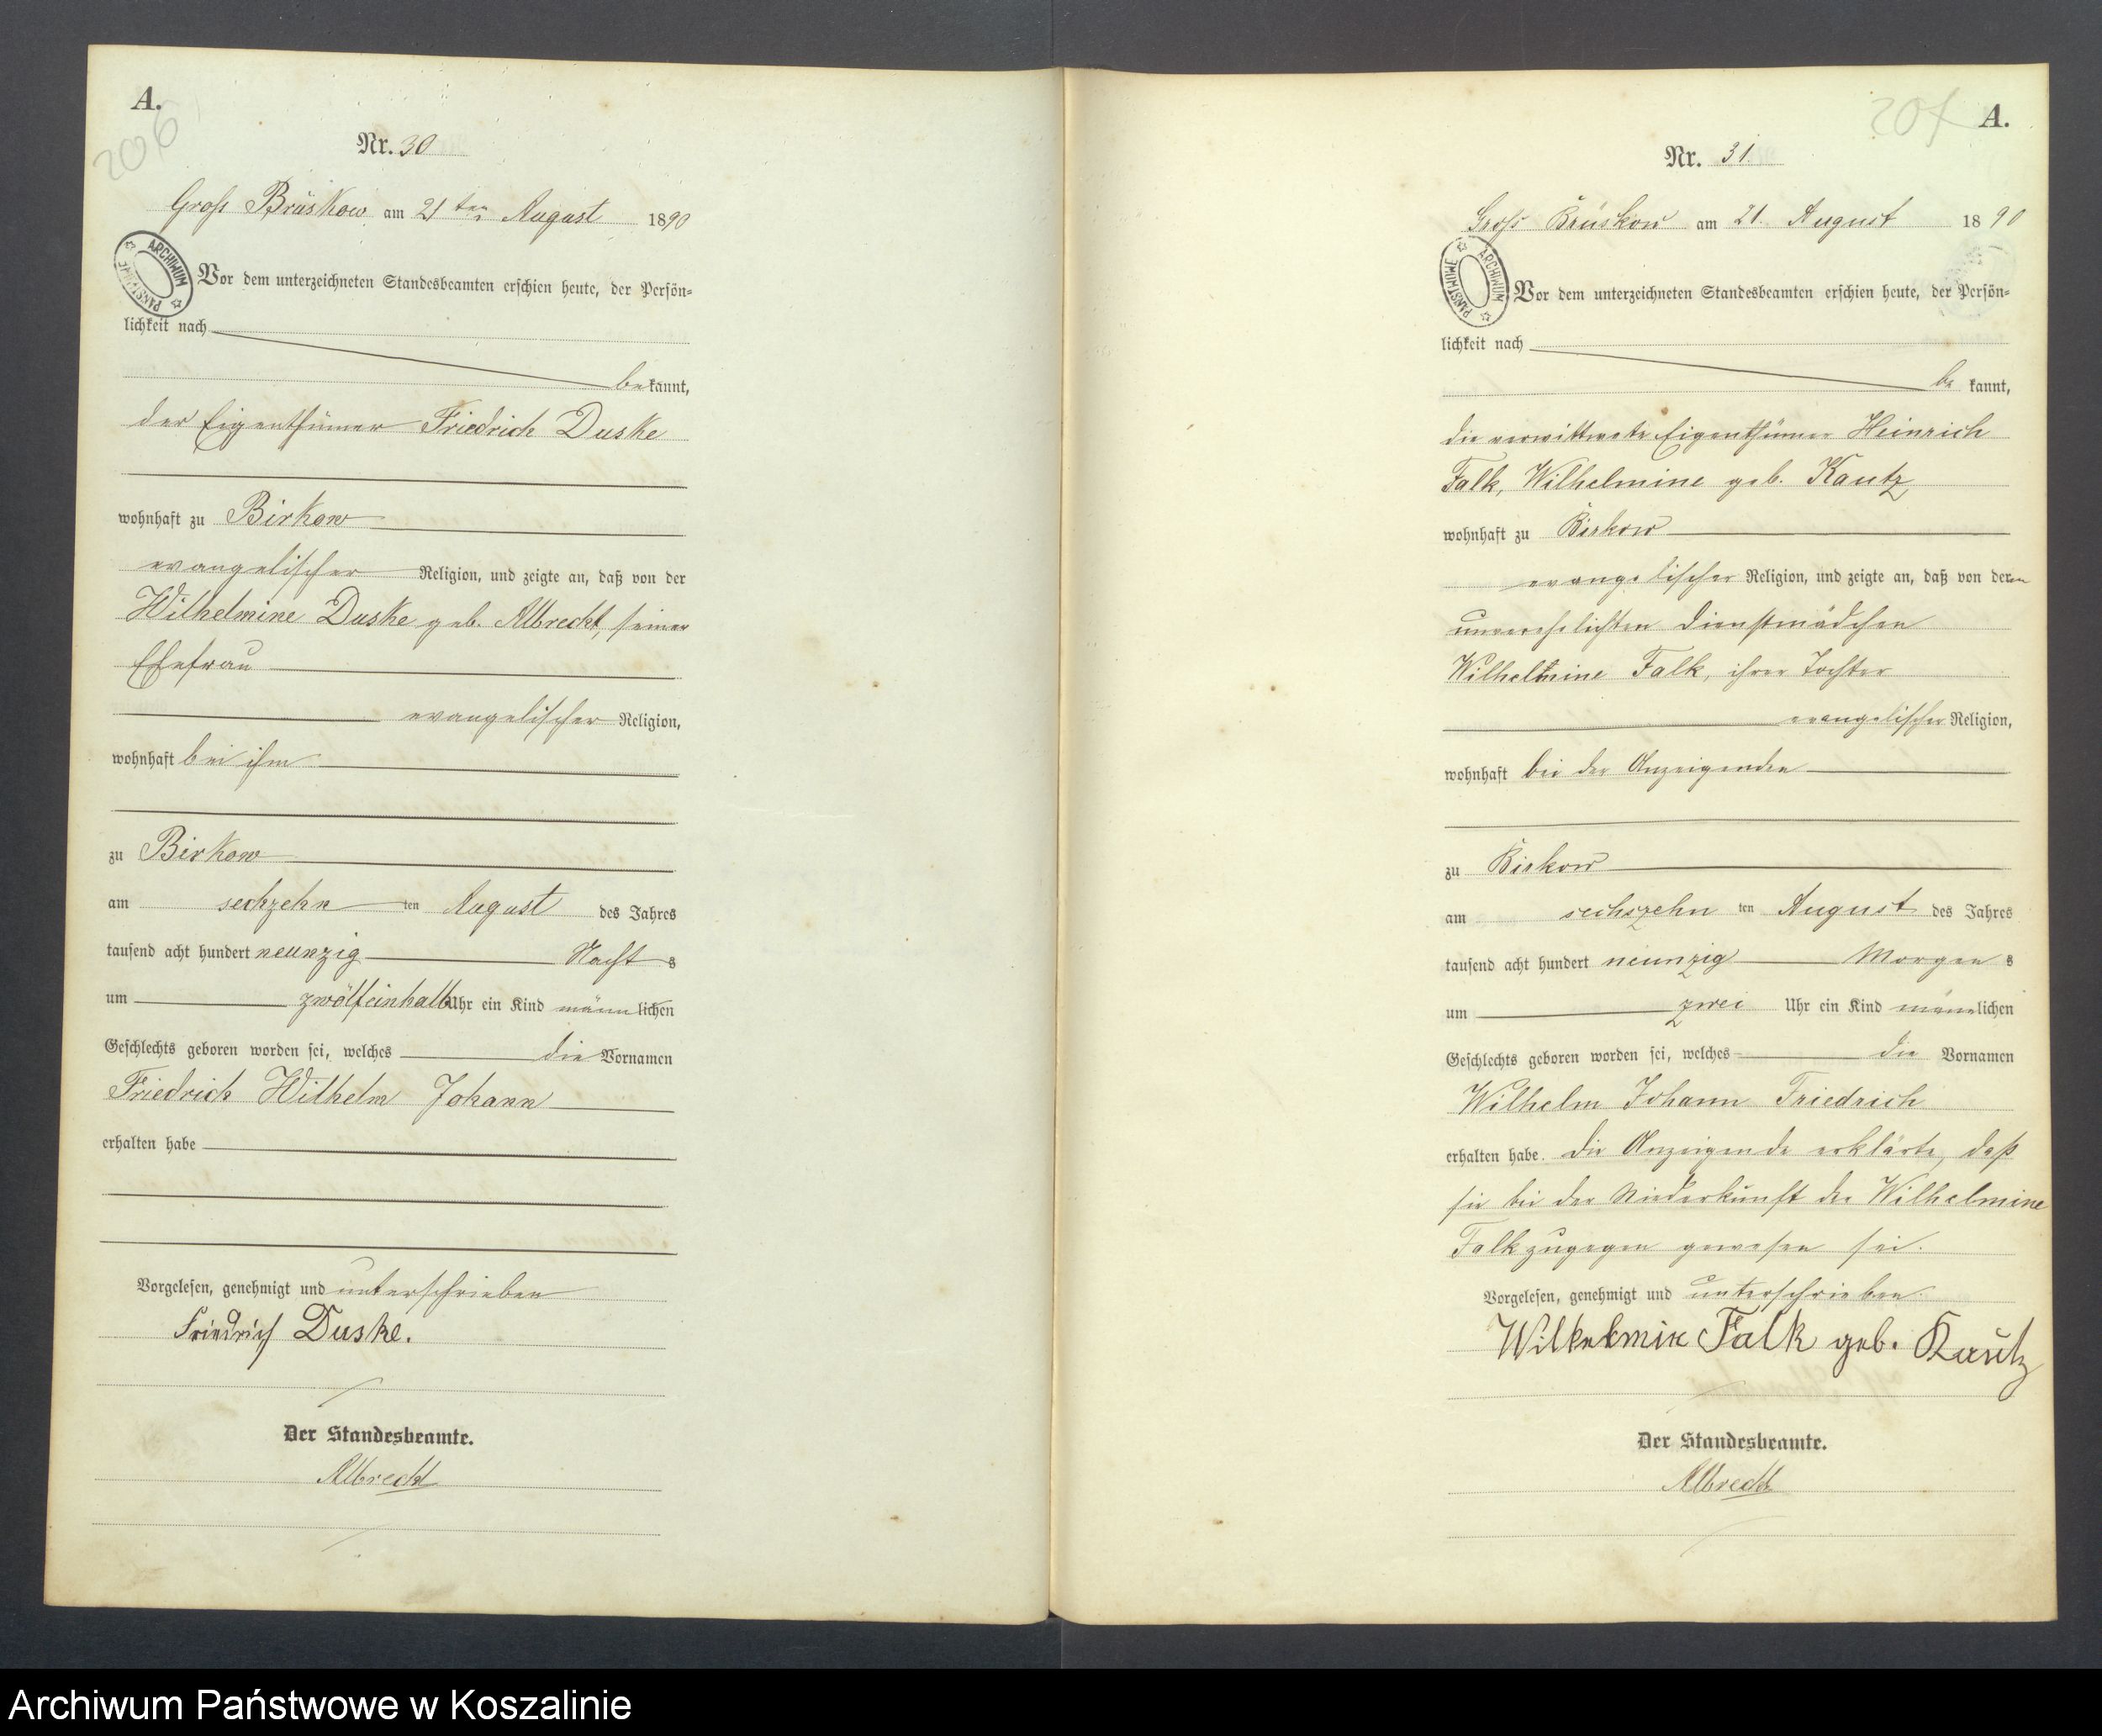 A.
206
Nr. 30
Groß Brüskow am 21ten August 1890
ARCHIWUM PAŃSTWOWE
Vor dem unterzeichneten Standesbeamten erschien heute, der Persön-
lichkeit nach
bekannt,
der Eigenthümer Friedrich Duske
wohnhaft zu Birkow
evangelischer Religion, und zeigte an, daß von der
Wilhelmine Duske geb. Albrecht, seiner
Ehefrau
evangelischer Religion,
wohnhaft bei ihm
zu Birkow
am sechzehn ten August des Jahres
tausend acht hundert neunzig Nachts
um zwölfeinhalb Uhr ein Kind männlichen
Geschlechts geboren worden sei, welches die Vornamen
Friedrich Wilhelm Johann
erhalten habe
Vorgelesen, genehmigt und unterschrieben
Friedrich Duske.
Der Standesbeamte.
Albrecht
A.
207
Nr. 31.
Groß Brüskow am 21. August 1890
ARCHIWUM PAŃSTWOWE
Vor dem unterzeichneten Standesbeamten erschien heute, der Persön-
lichkeit nach
be kannt,
die verwittwete Eigenthümer Heinrich
Falk, Wilhelmine geb. Kautz,
wohnhaft zu Birkow
evangelischer Religion, und zeigte an, daß von der
unverehelichten Dienstmädchen
Wilhelmine Falk, ihrer Tochter
evangelischer Religion,
wohnhaft bei der Anzeigenden
zu Birkow
am sechszehn ten August des Jahres
tausend acht hundert neunzig Morgens
um zwei Uhr ein Kind männlichen
Geschlechts geboren worden sei, welches die Vornamen
Wilhelm Johann Friedrich
erhalten habe. Die Anzeigende erklärte, daß
sie bei der Niederkunft der Wilhelmine
Falk zugegen gewesen sei.
Vorgelesen, genehmigt und unterschrieben.
Wilhelmine Falk geb. Kautz
Der Standesbeamte.
Albrecht
Archiwum Państwowe w Koszalinie